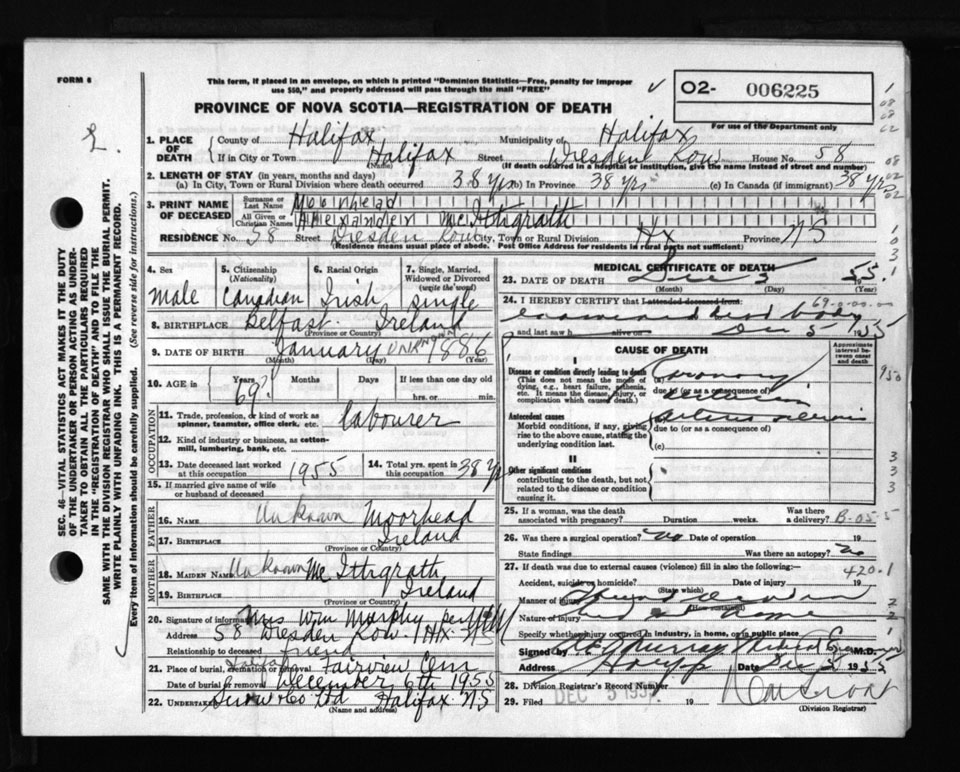 FORM 6
This form, if placed in an envelope, on which is printed "Dominion Statistics—Free, penalty for improper
use $50," and properly addressed will pass through the mail "FREE"
PROVINCE OF NOVA SCOTIA—REGISTRATION OF DEATH
O2- 006225
For use of the Department only
1. PLACE OF DEATH
County of Halifax Municipality of Halifax
If in City or Town Halifax Street Dresden Row House No. 58
(Name)
(If death occurred in a hospital or institution, give its name instead of street and number)
2. LENGTH OF STAY (in years, months and days)
(a) In City, Town or Rural Division where death occurred 38 yrs (b) In Province 38 yrs (c) In Canada (if immigrant) 38 yrs
3. PRINT NAME OF DECEASED
Surname or Last Name Moorhead
All Given or Christian Names Alexander McIttrgrath
RESIDENCE No. 58 Street Dresden Row City, Town or Rural Division Hx Province NS
(Residence means usual place of abode. Post Office Address for residents in rural parts not sufficient)
4. Sex Male
5. Citizenship (Nationality) Canadian
6. Racial Origin Irish
7. Single, Married, Widowed or Divorced (write the word) single
8. BIRTHPLACE Belfast Ireland
(Province or Country)
9. DATE OF BIRTH January unknown 1886
(Month) (Day) (Year)
10. AGE in Years 69? Months Days If less than one day old
hrs. or min.
OCCUPATION
11. Trade, profession, or kind of work as
spinner, teamster, office clerk, etc. labourer
12. Kind of industry or business, as cotton-
mill, lumbering, bank, etc.
13. Date deceased last worked
at this occupation 1955
14. Total yrs. spent in
this occupation 38 yrs
15. If married give name of wife
or husband of deceased
FATHER
16. NAME Unknown Moorhead
17. BIRTHPLACE Ireland
(Province or Country)
MOTHER
18. MAIDEN NAME Unknown McIttrgrath
19. BIRTHPLACE Ireland
(Province or Country)
20. Signature of informant Mrs Wm Murphy per
Address 58 Dresden Row Hx NS
Relationship to deceased friend
21. Place of burial, cremation or removal Halifax Fairview Cem
Date of burial or removal December 6th 1955
22. UNDERTAKER Snow & Co Ltd Halifax NS
(Name and address)
MEDICAL CERTIFICATE OF DEATH
23. DATE OF DEATH Dec 3 1955
(Month) (Day) (Year)
24. I HEREBY CERTIFY that I attended deceased from
examined dead body
and last saw h alive on Dec 5 1955
CAUSE OF DEATH
Approximate interval between onset and death
I
Disease or condition directly leading to death
(This does not mean the mode of
dying, e.g., heart failure, asthenia,
etc. It means the disease, injury, or
complication which caused death.)
(a) Coronary
due to (or as a consequence of)
Antecedent causes
Morbid conditions, if any, giving
rise to the above cause, stating the
underlying condition last.
due to (or as a consequence of)
(c)
II
Other significant conditions
contributing to the death, but not
related to the disease or condition
causing it.
25. If a woman, was the death
associated with pregnancy? Duration weeks. Was there
a delivery? B-05-5
26. Was there a surgical operation? no Date of operation 19
State findings Was there an autopsy? no
27. If death was due to external causes (violence) fill in also the following:— 420.1
Accident, suicide or homicide? Date of injury 19
(State which)
Manner of injury
(How sustained)
Nature of injury
Specify whether injury occurred in industry, in home, or in public place
Signed by Murray Medical Examiner M.D.
Address Date Dec 5 1955
28. Division Registrar's Record Number
29. Filed DEC 5 195 19
(Division Registrar)
SEC. 46—VITAL STATISTICS ACT MAKES IT THE DUTY
OF THE UNDERTAKER OR PERSON ACTING AS UNDER-
TAKER TO OBTAIN ALL THE PARTICULARS REQUIRED
IN THE "REGISTRATION OF DEATH" AND TO FILE THE
SAME WITH THE DIVISION REGISTRAR WHO SHALL ISSUE THE BURIAL PERMIT.
WRITE PLAINLY WITH UNFADING INK. THIS IS A PERMANENT RECORD.
Every item of information should be carefully supplied. (See reverse side for instructions.)